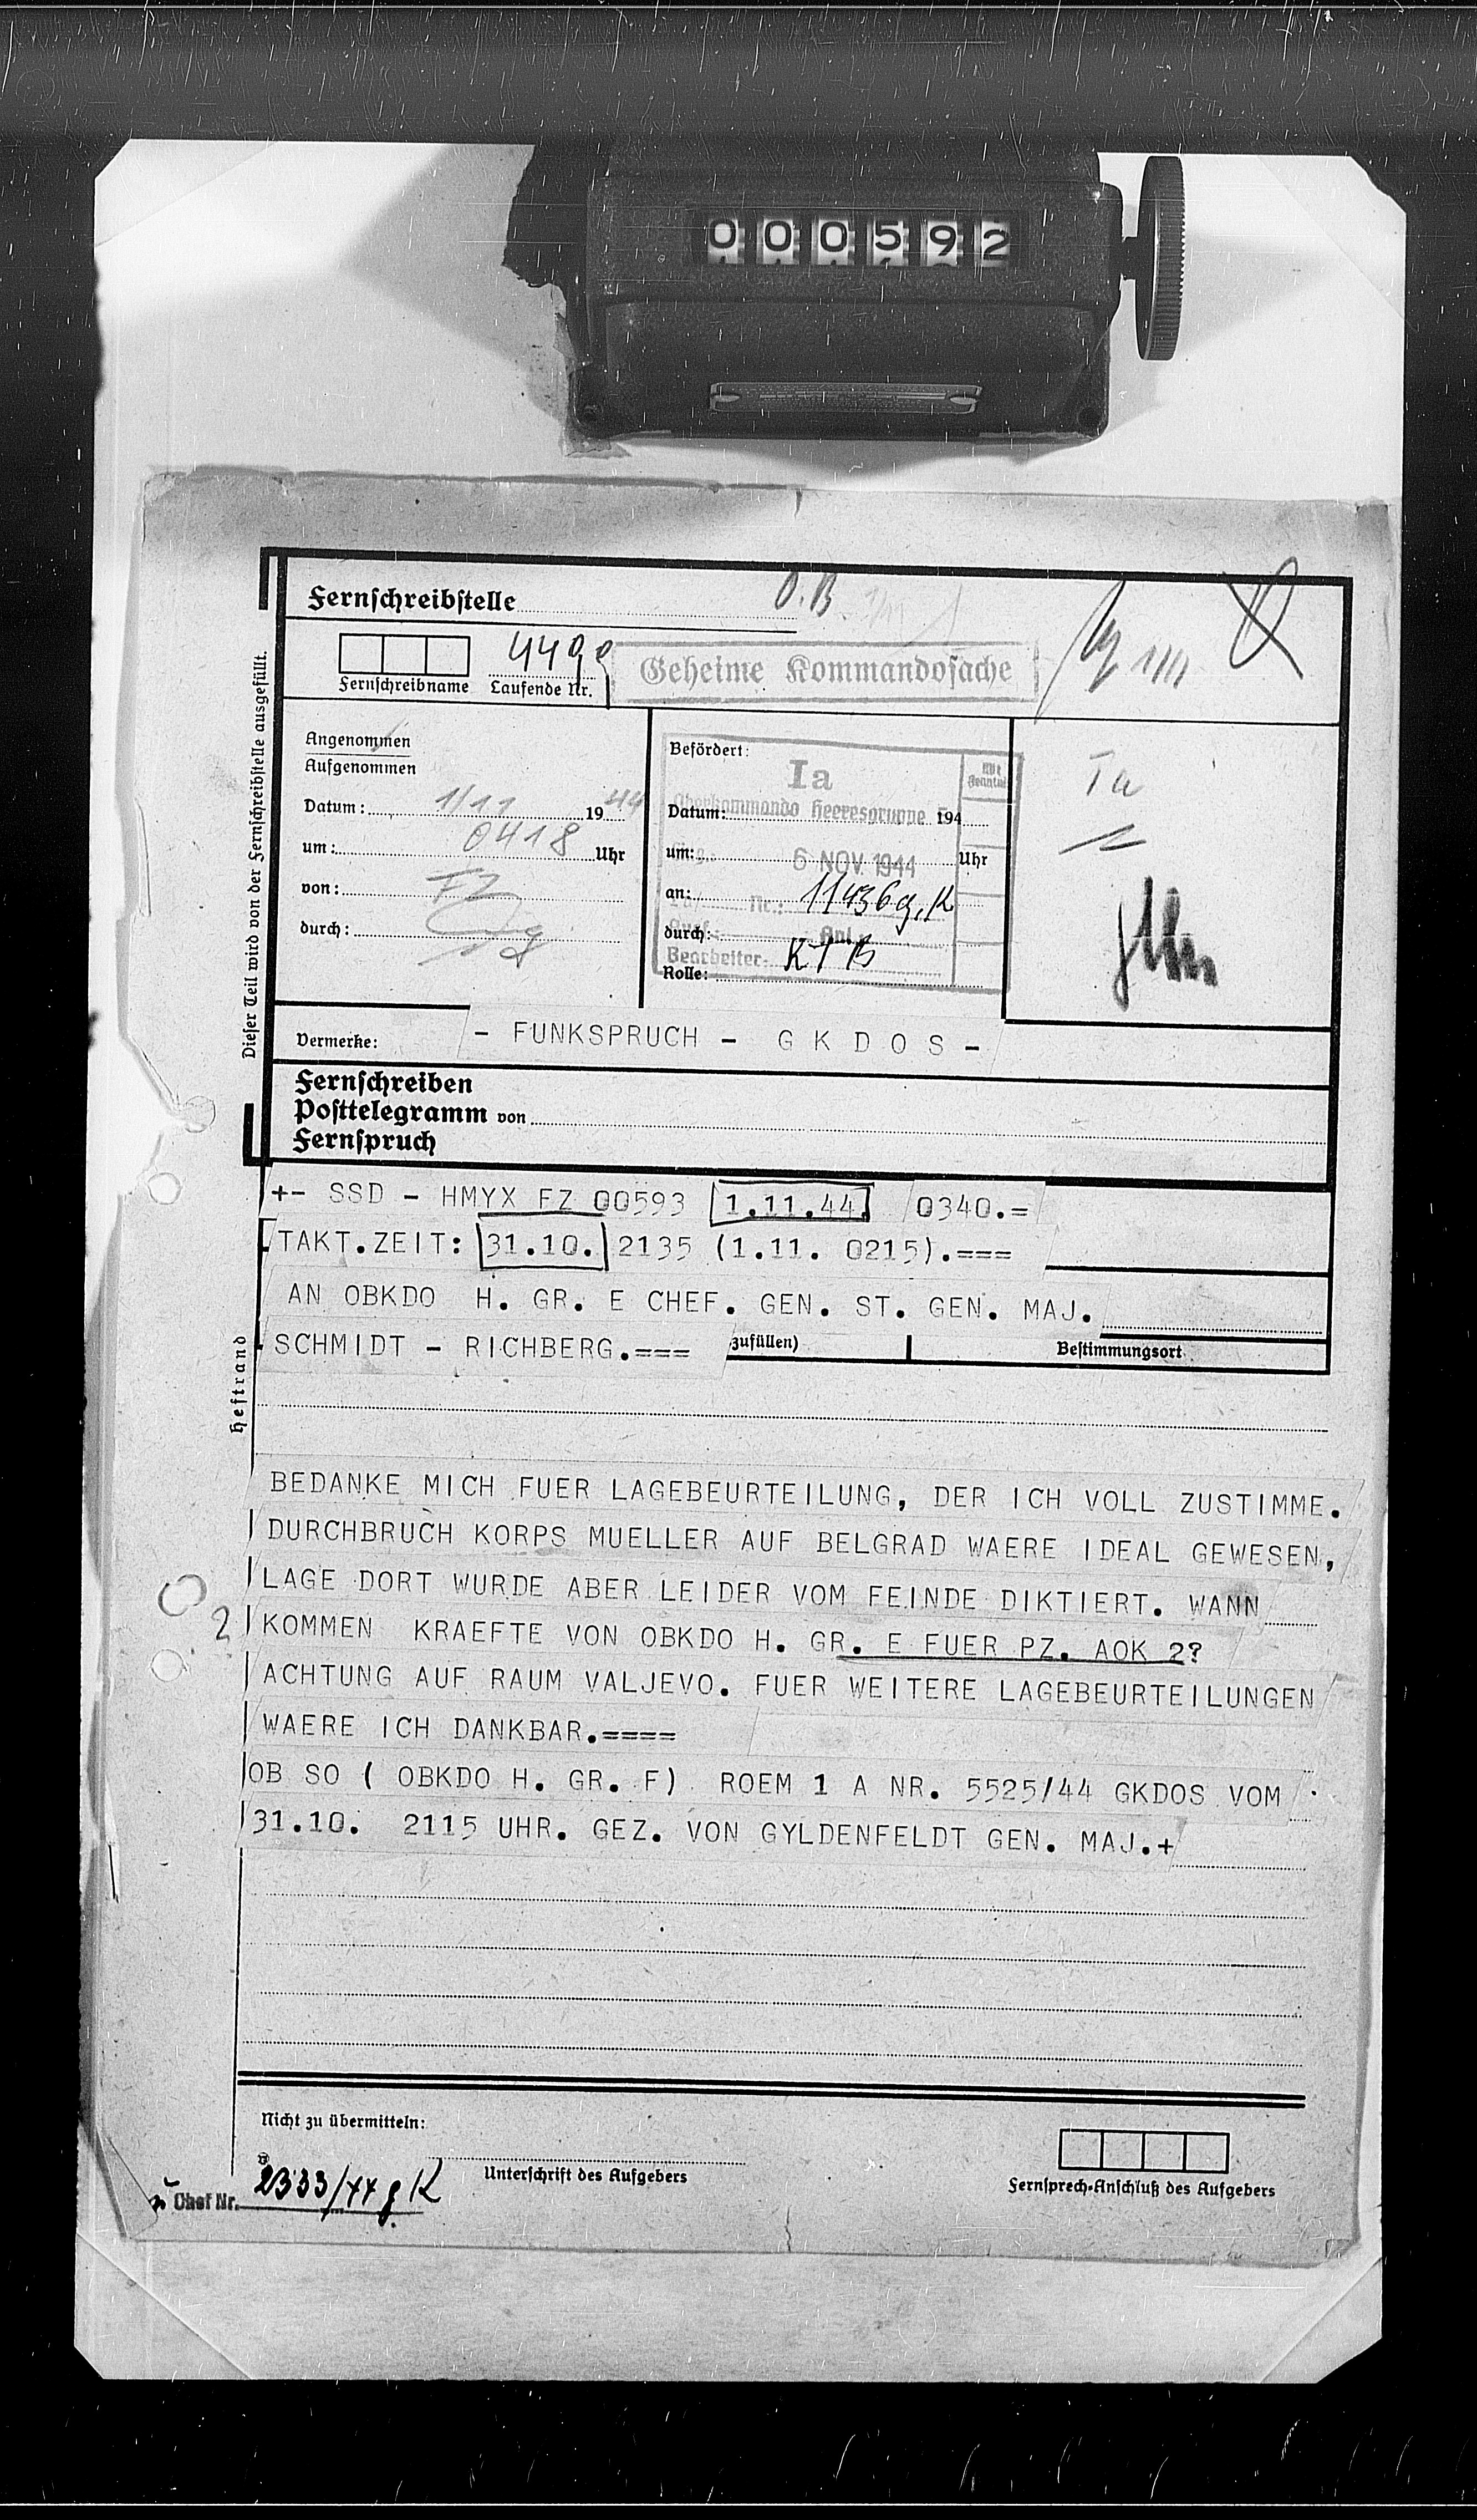 000592
Fernschreibstelle
O.B.
Fernschreibname
Laufende Nr.
Geheime Kommandosache
Dieser Teil wird von der Fernschreibstelle ausgefüllt.
Angenommen
Aufgenommen
Datum: 1/11 1944
um: 0418 Uhr
von: FZ
durch:
Befördert:
Ia
Oberkommando Heeresgruppe E
Datum: 194
6. NOV. 1944
um: Uhr
an:
Nr.: 11436 g.K
durch:
Anl.:
Bearbeiter: KTB
Rolle:
Ia
Vermerke: - FUNKSPRUCH - G K D O S -
Fernschreiben
Posttelegramm von
Fernspruch
+- SSD - HMYX FZ 00593 1.11.44. 0340.=
TAKT.ZEIT: 31.10. 2135 (1.11. 0215).===
AN OBKDO H. GR. E CHEF. GEN. ST. GEN. MAJ.
SCHMIDT - RICHBERG.===
zufüllen)
Bestimmungsort
Heftrand
BEDANKE MICH FUER LAGEBEURTEILUNG, DER ICH VOLL ZUSTIMME.
DURCHBRUCH KORPS MUELLER AUF BELGRAD WAERE IDEAL GEWESEN,
LAGE DORT WURDE ABER LEIDER VOM FEINDE DIKTIERT. WANN
KOMMEN KRAEFTE VON OBKDO H. GR. E FUER PZ. AOK 2?
ACHTUNG AUF RAUM VALJEVO. FUER WEITERE LAGEBEURTEILUNGEN
WAERE ICH DANKBAR.====
OB SO ( OBKDO H. GR. F) ROEM 1 A NR. 5525/44 GKDOS VOM
31.10. 2115 UHR. GEZ. VON GYLDENFELDT GEN. MAJ.+
Nicht zu übermitteln:
Unterschrift des Aufgebers
Fernsprech-Anschluß des Aufgebers
Chef Nr. 2333/44 g K